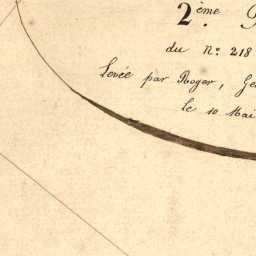 2.ème
du N.º 218
Levée par Roger,
le 10 Mai